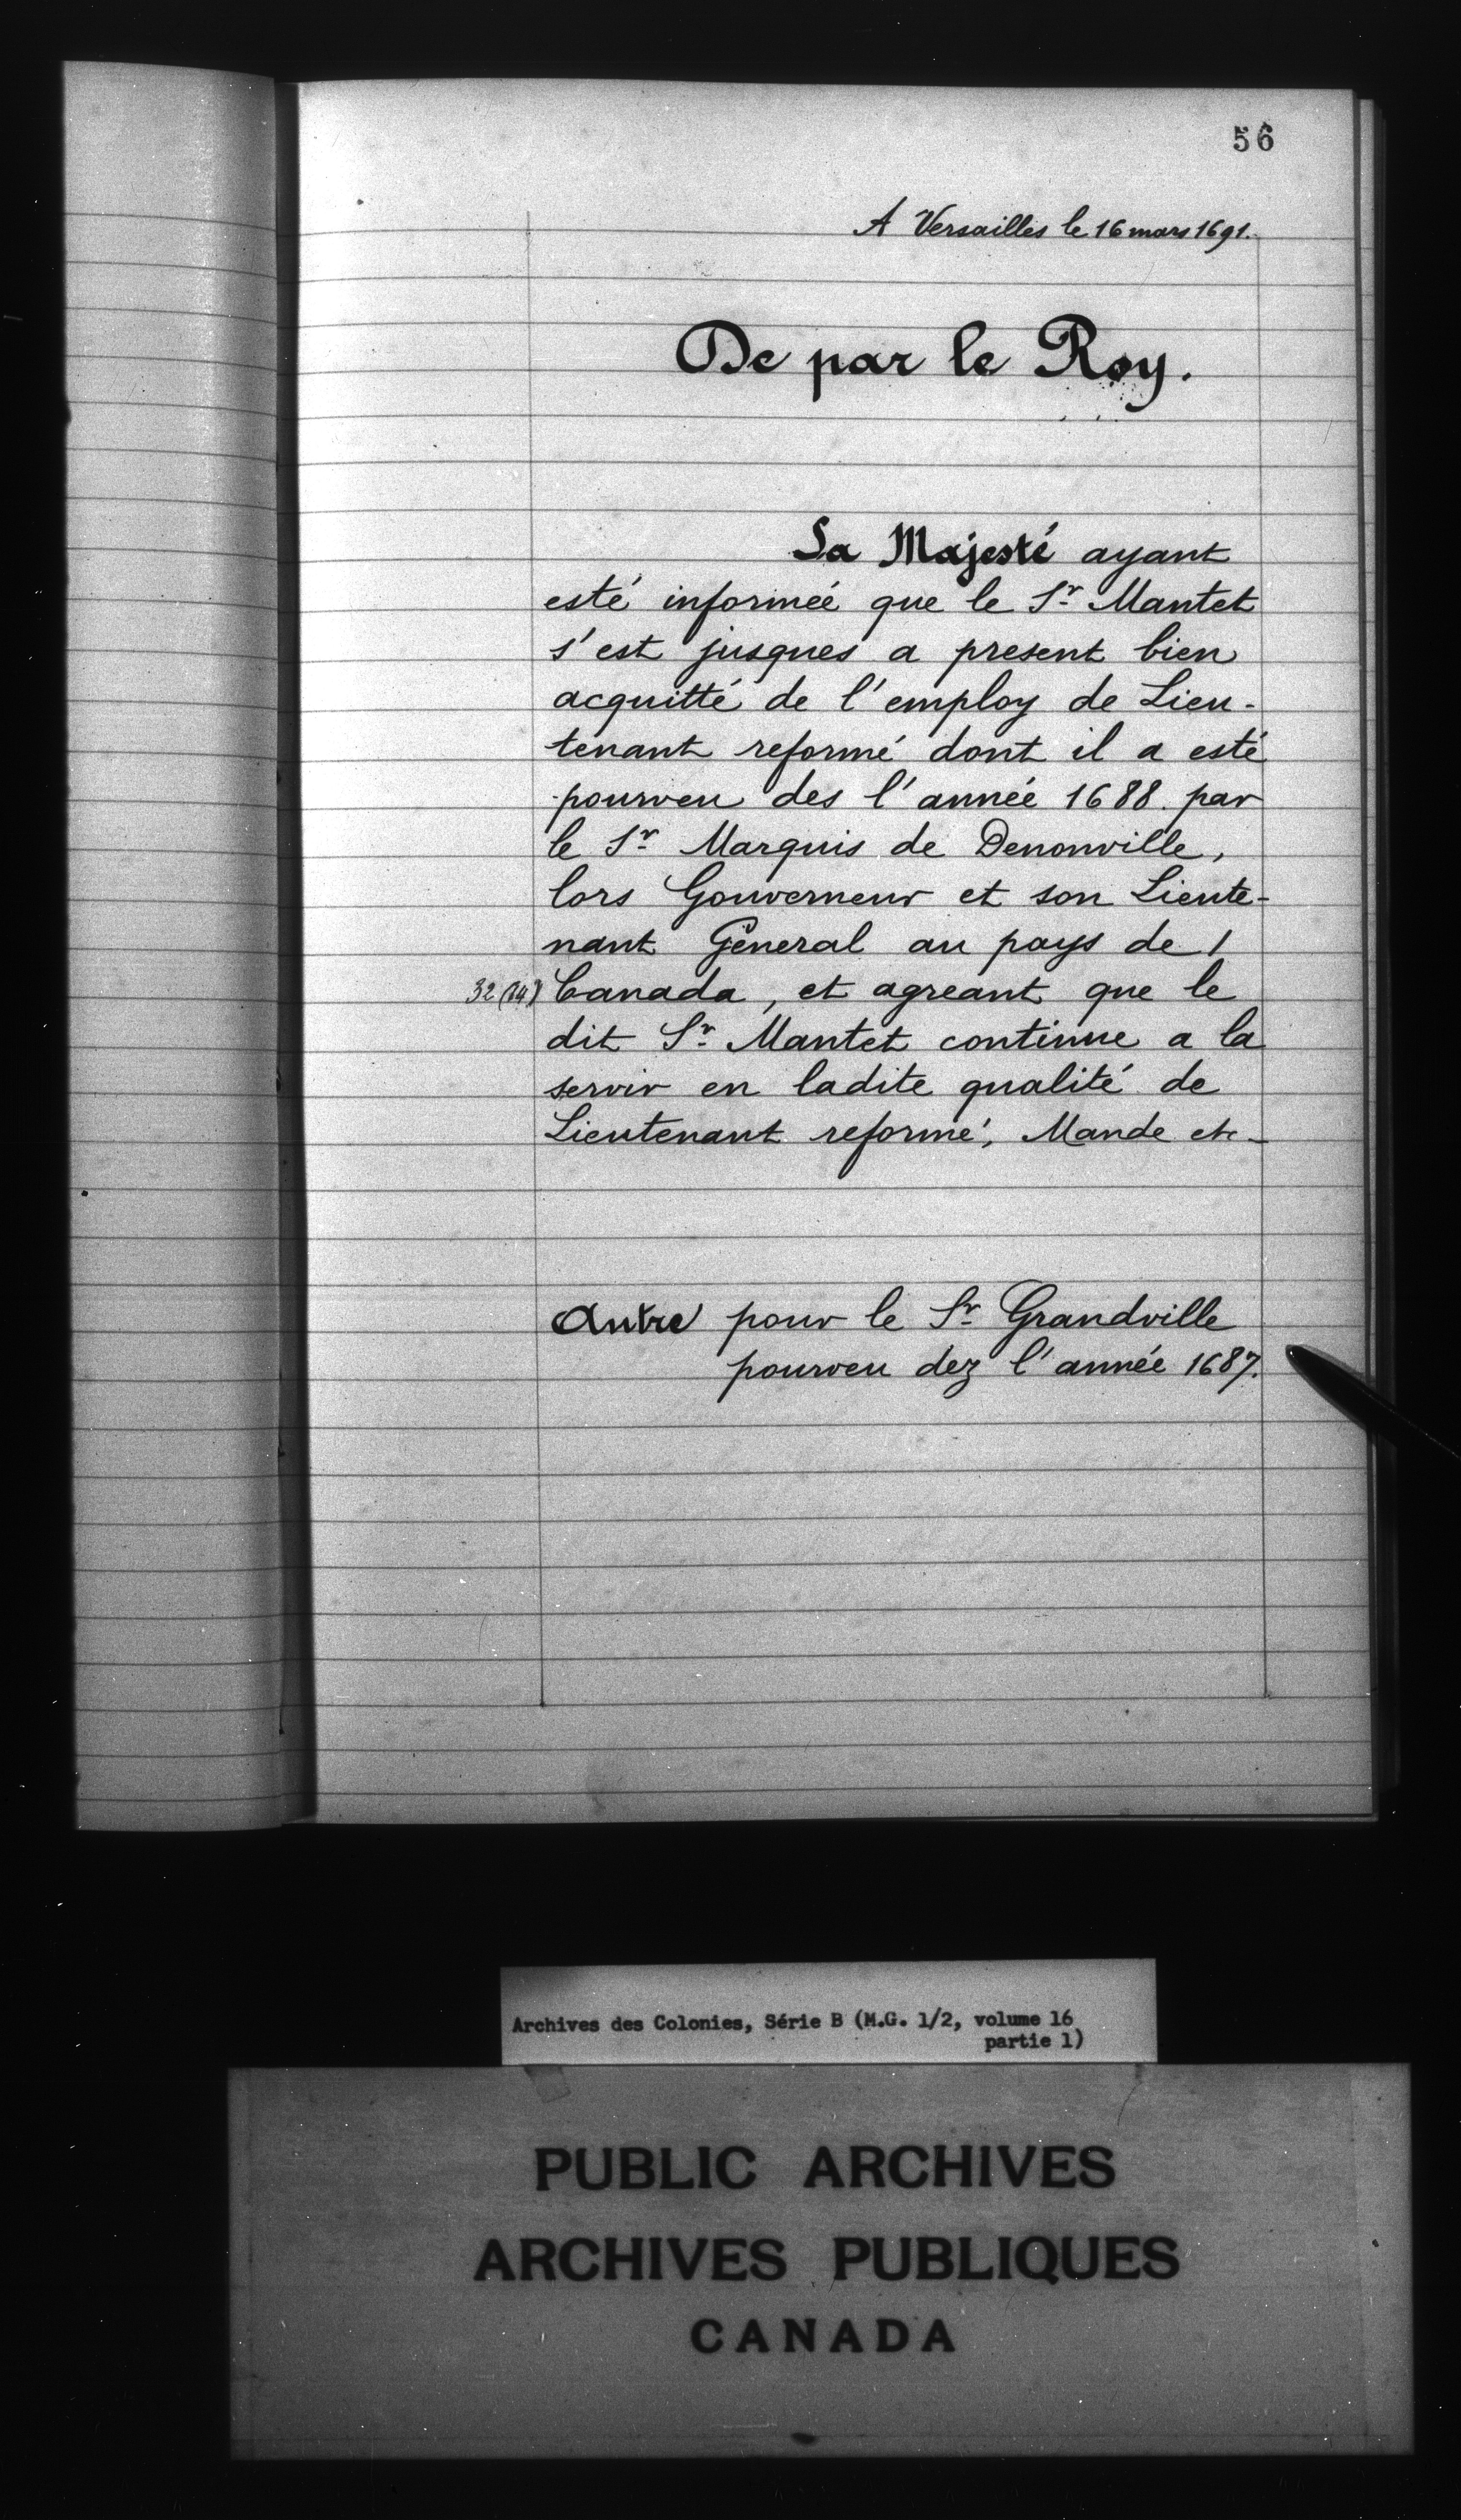 56
A Versailles le 16 mars 1691.
De par le Roy.
Sa Majesté ayant
esté informéé que le Sr Mantet
s'est jusques a present bien
acquitté de l'employ de Lieu-
tenant reformé dont il a esté
pourveu des l'année 1688. par
le Sr Marquis de Denonville,
lors Gouverneur et son Lieute-
nant General au pays de /
32 (14) Canada, et agreant que le
dit Sr Mantet continue a la
servir en ladite qualité de
Lieutenant reformé, Mande etc
Autre pour le Sr Grandville
pourveu dez l'année 1687.
Archives des Colonies, Série B (M.G. 1/2, volume 16
partie 1)
PUBLIC ARCHIVES
ARCHIVES PUBLIQUES
CANADA